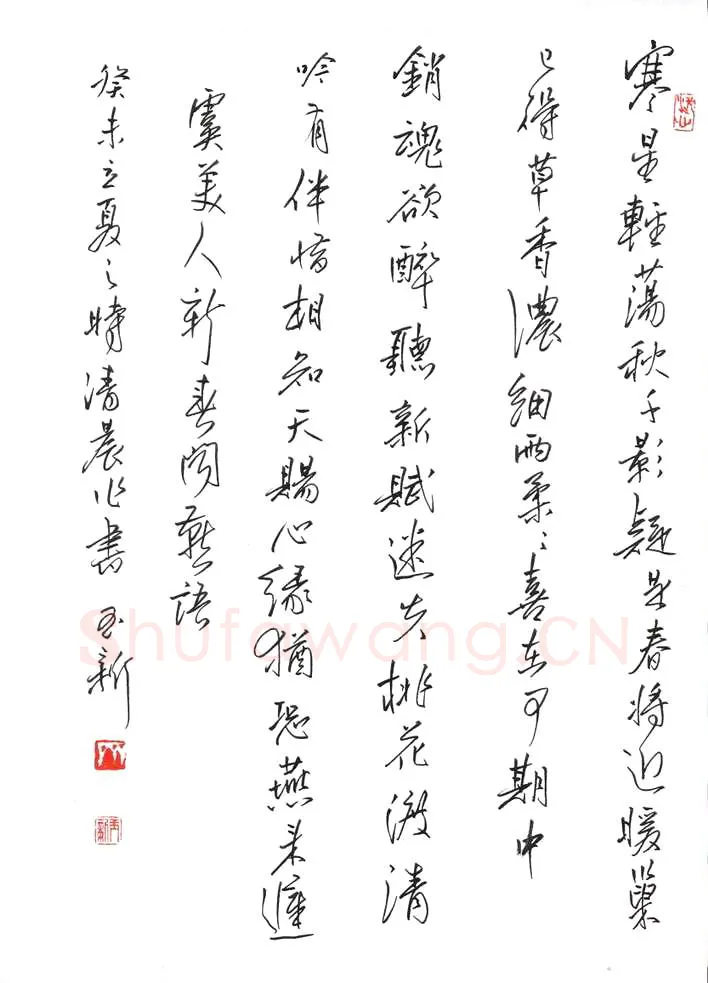 寒星輕蕩秋千影疑是春將近暖巢
已得草香濃細雨柔〻喜在可期中
銷魂欲醉聽新賦迷失桃花渡清
吟有伴惜相知天賜心緣猶恐燕來遲
虞美人新春聞燕語
癸未立夏之時清晨作書 玉新
Shufawang.CN